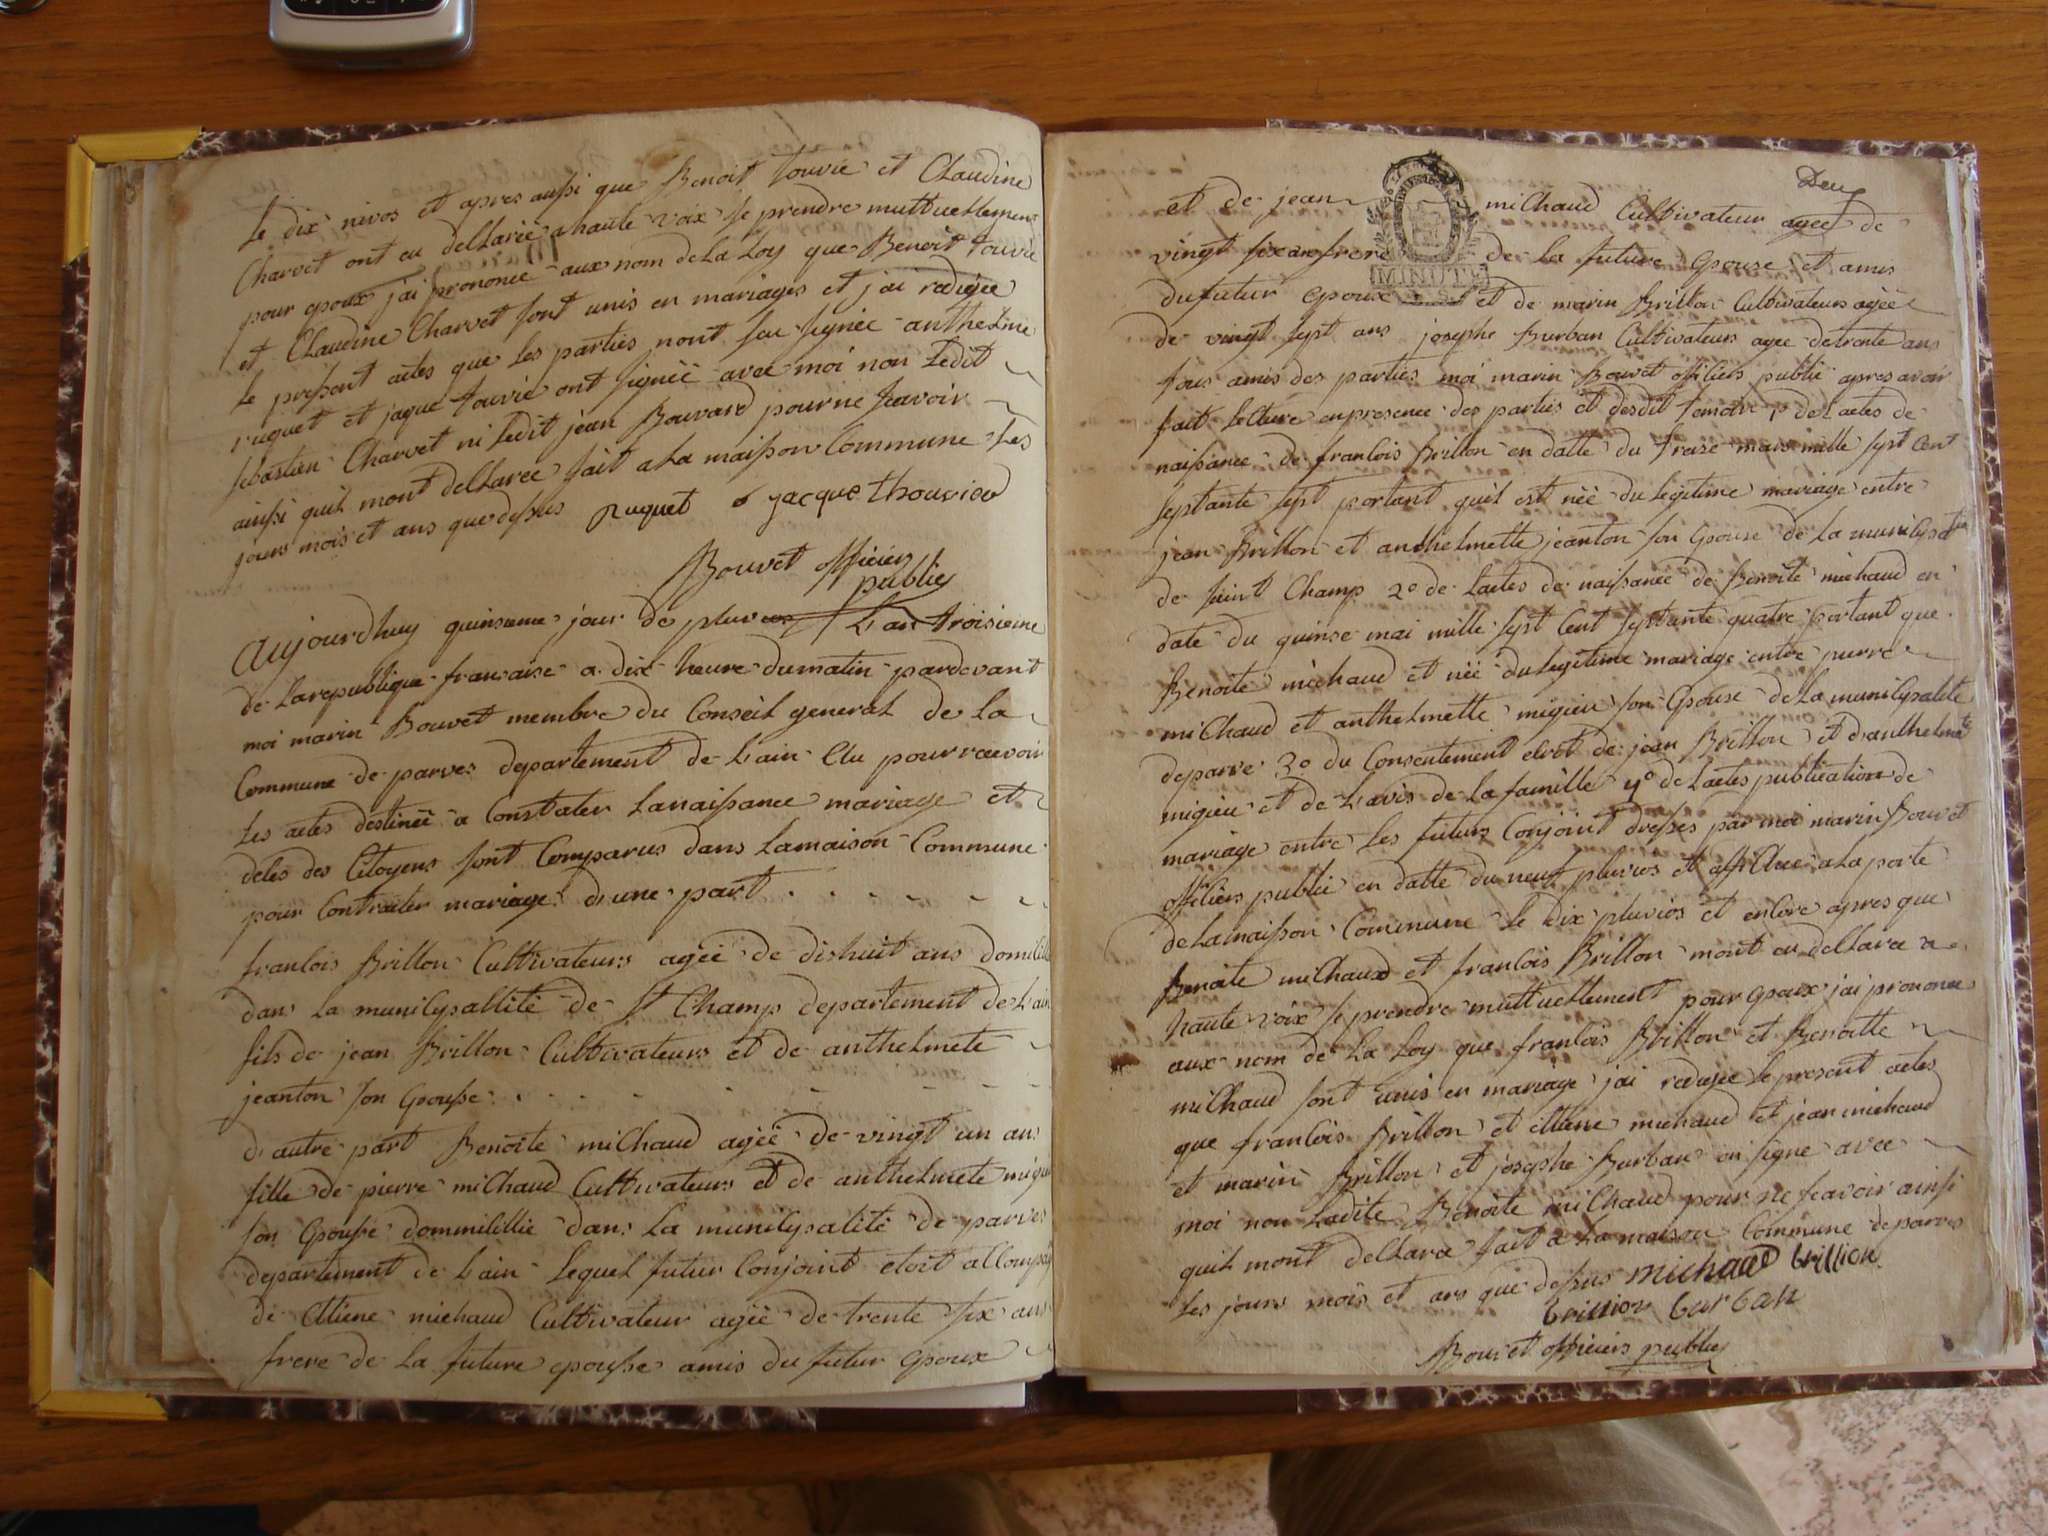 Le dix nivos et apres aussi que Benoit touvie et Claudine
Charvet ont eu dellarée a haute voix se prendre muttuellement
pour epoux j'ai prononcé aux nom de La Loy que Benoit touvie
et Claudine Charvet sont unis en mariages et j'ai redigée
le present actes que Les parties nont seu signée anthelme
ruguet et jaque touvie ont signéé avec moi non Ledit
sebastien Charvet ni Ledit jean Bouvard pour ne scavoir
ainssi quil mont dellarée fait a La maisson Commune Les
jours mois et ans que dessus ruguet jacque thouvier
Bouvet officier
public
Aujourdhuy quinsieme jour de pluvios L'an troisieme
de La republique fransaise a dix heure du matin pardevant
moi marin Bouvet membre du Conseil general de La
Commune de parves departement de L'ain Elu pour recevoir
Les actes destinéé a Constater La naissance mariage et
deces des Citoyens sont Comparus dans La maison Commune
pour Contracter mariage d'une part
francois Brillon Cultivateurs agéé de dishuit ans domicillé
dans La municypallité de St Champ departement de L'ain
fils de jean Brillon Cultivateurs et de anthelmete
jeanton son Epousse
d'autre part Benoite miChaud agéé de vingt un ans
fille de pierre miChaud Cultivateurs et de anthelmete migieu
son Epousse dommicillié dans La municypalité de parves
departement de L'ain Lequel futur Conjoint etoit accompagné
de Etiene michaud Cultivateur agéé de trente six ans
frere de La future epousse amis du futur epoux
Deux
et de jean miChaud Cultivateur agéé de
vingt six an frere de La future Epouse et amis
MINUTE
du futur epoux et de marin Brillon Cultivateurs agéé
de vingt sept ans josephe Burban Cultivateurs agee de trente ans
tous amis des parties moi marin Bouvet officiers public apres avoir
fait Lecture en presence des parties et desdit temoin 1º de L'actes de
naissance de francois Brillon en datte du traise mars mille sept Cent
septante sept portant quil est néé du Legitime mariage entre
jean Brillon et anthelmette jeanton son Epouse de La municypalité
de saint Champ 2º de Lactes de naissance de Benoite michaud en
date du quinse mai mille sept Cent septante quatre portant que
Benoite michaud et néé du Legitime mariage entre pierre
miChaud et anthelmette migieu son Epouse de La municypalité
de parve 3º du Consentement de jean Brillon et d'anthelmete
migieu et de L'avis de La famille 4º de L'actes publication de
mariage entre Les futurs Conjoint dresses par moi marin Bouvet
officiers public en datte du neuf pluvios et affichee a La porte
de La maisson Commune Le dix pluvios et encore apres que
Benoite miChaud et francois Brillon mont eu dellaree a
haute voix se prendre muttuellement pour epoux j'ai prononcé
aux nom de La Loy que francois Brillon et Benoitte
miChaud sont unis en mariage j'ai redigée Le present actes
que francois Brillon et ettiene michaud et jean michaud
et marin Brillon et josephe Burban on signe avec
moi non Ladite Benoite miChaud pour ne scavoir ainsi
quil mont dellaree fait a La maison Commune de parves
Les jours mois et ans que dessus michaud brillion
brillion burban
Bouvet officiers public